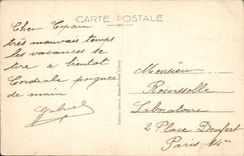 CARTE POSTALE
Cher Copain
très mauvais temps
les vacances se
tire a bientot
Cordiale poignee
de main
Gabriel
Monsieur
Roussolle
Laboratoire
2 Place Denfert
Paris 14e